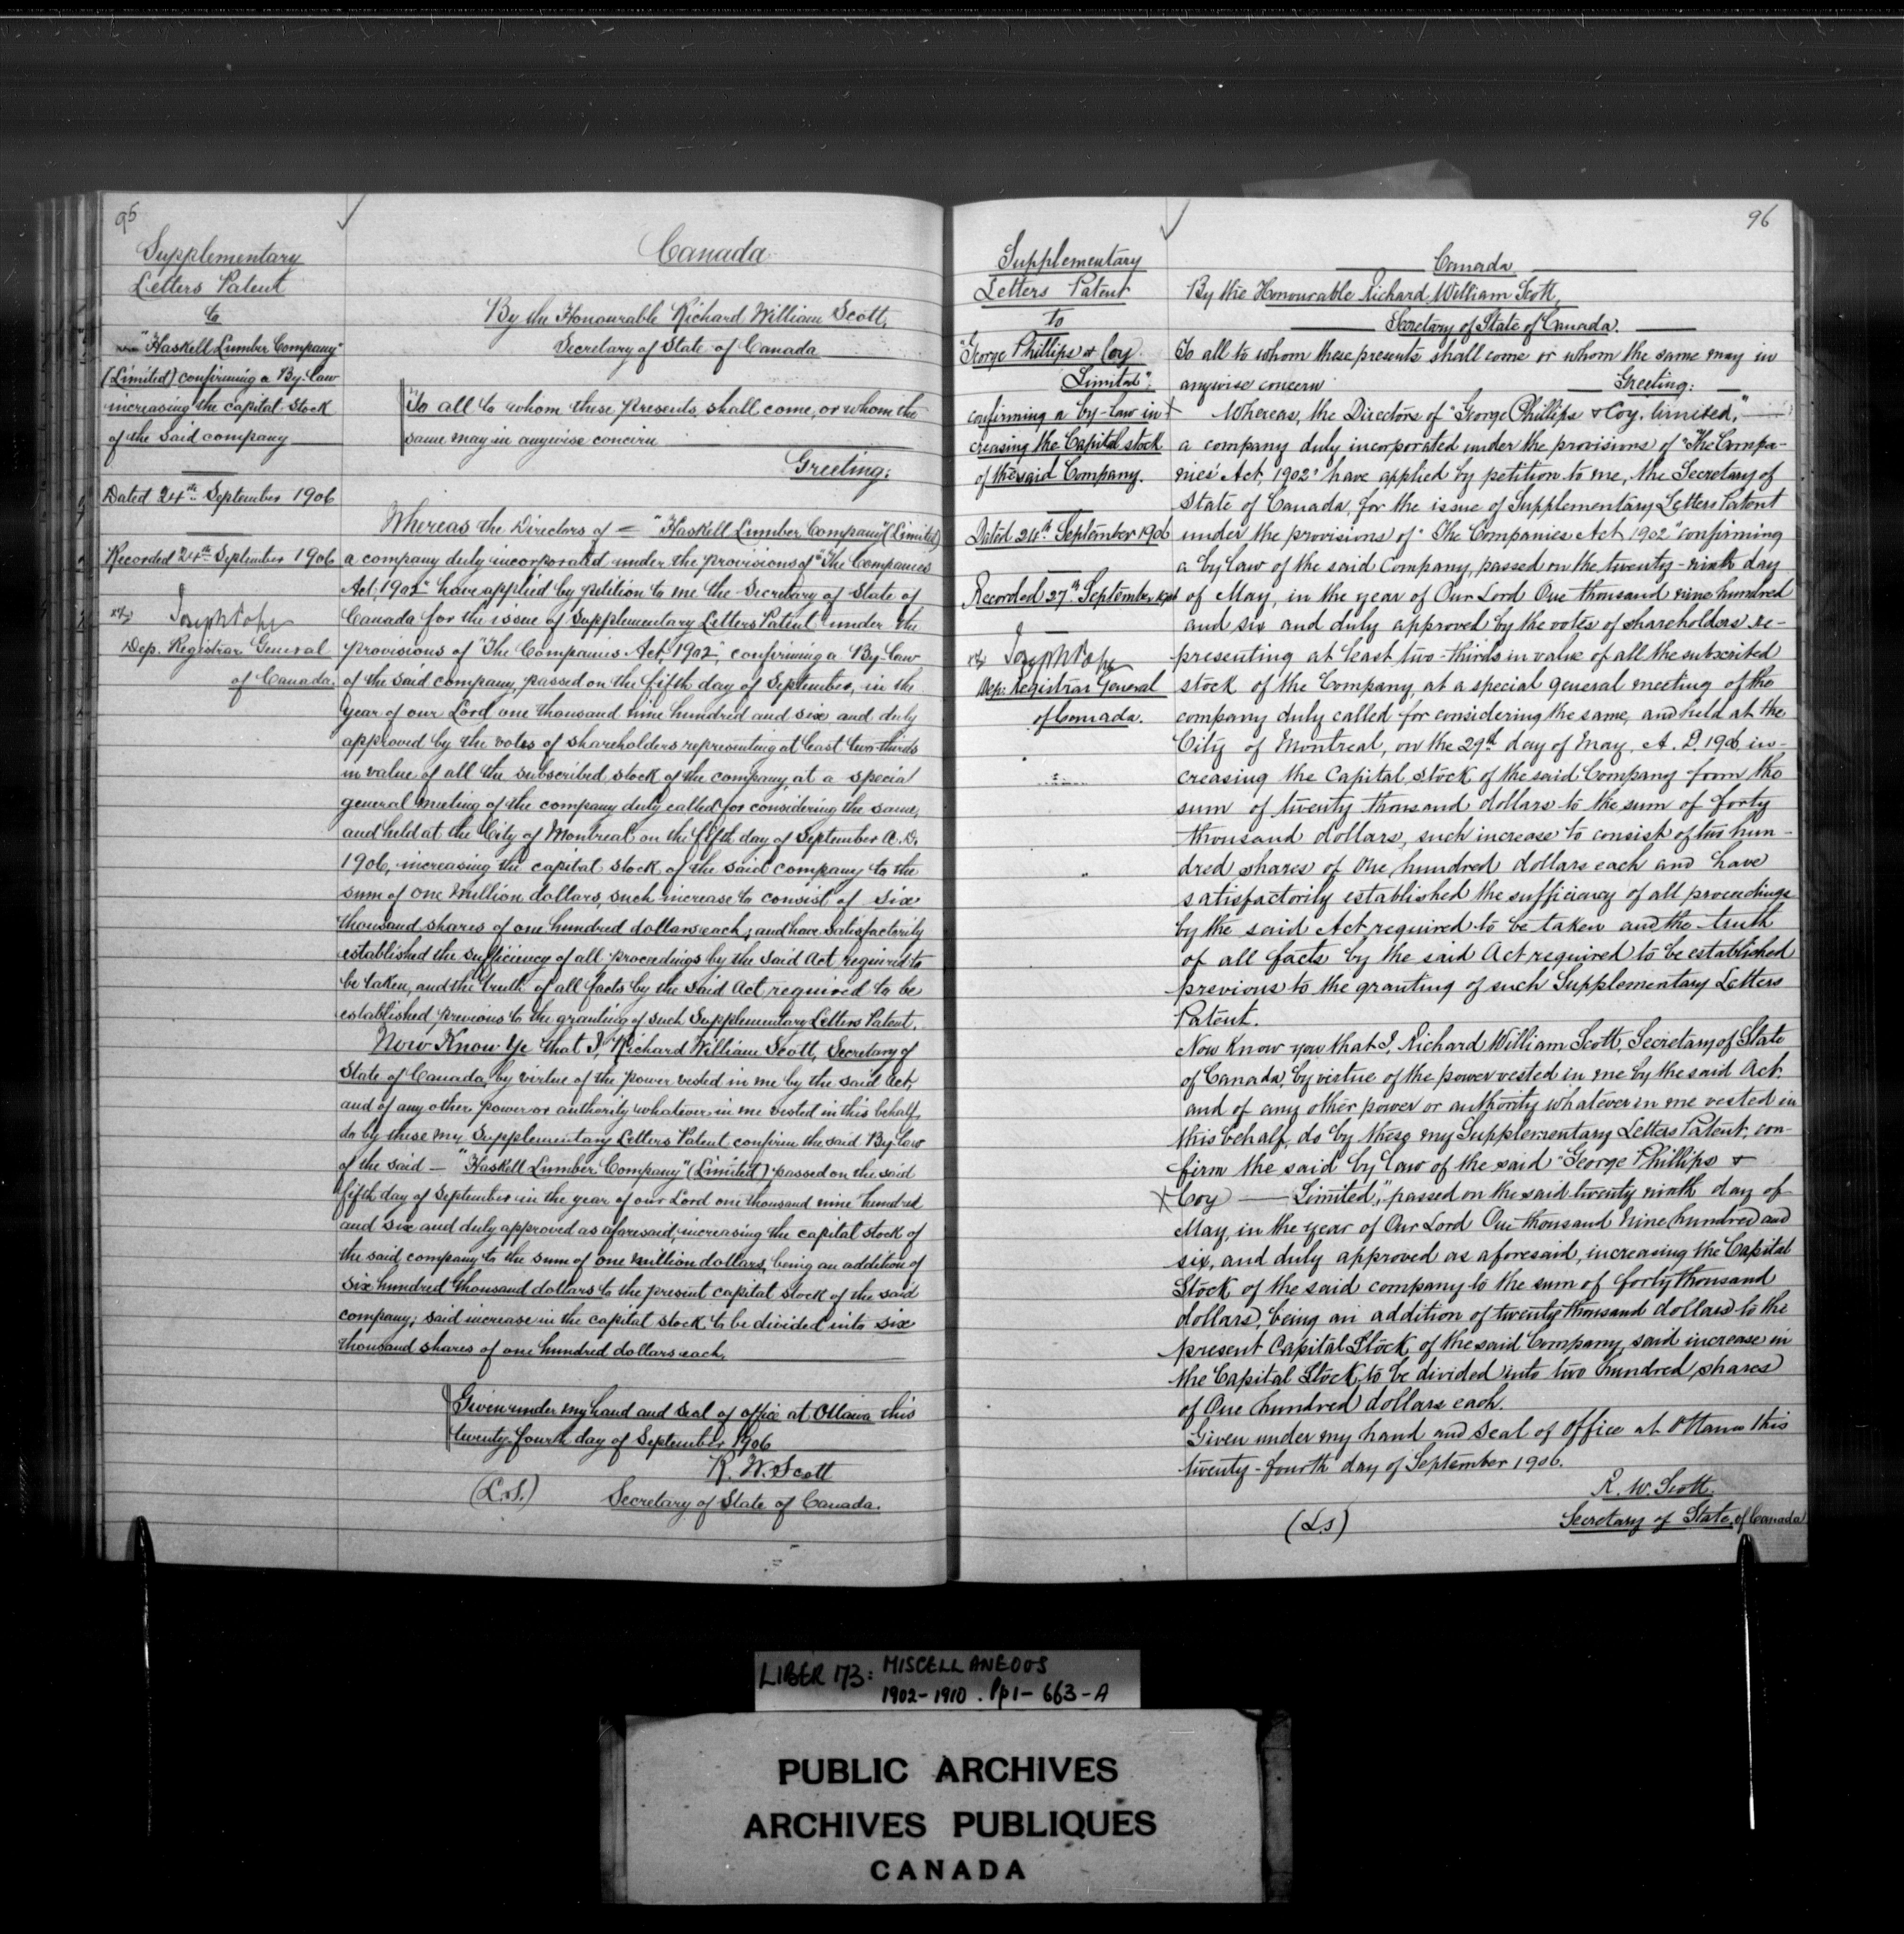 95
Supplementary
Letters Patent
to
"Haskell Lumber Company"
(Limited) confirming a By-law
increasing the capital stock
of the said company
Dated 24th September 1906
Recorded 24th September 1906
Joseph Pope
Dep. Registrar General
of Canada.
Canada
By the Honourable Richard William Scott,
Secretary of State of Canada
To all to whom these presents shall come, or whom the
same may in anywise concern
Greeting:
Whereas the Directors of = "Haskell Lumber Company" (Limited)
a company duly incorporated under the provisions of "The Companies
Act, 1902" have applied by petition to me the Secretary of State of
Canada for the issue of Supplementary Letters Patent under the
provisions of "The Companies Act, 1902", confirming a By-law
of the said company, passed on the fifth day of September, in the
year of our Lord one thousand nine hundred and six and duly
approved by the votes of shareholders representing at least two-thirds
in value of all the subscribed stock of the company, at a special
general meeting of the company duly called for considering the same,
and held at the City of Montreal on the fifth day of September A.D.
1906, increasing the capital stock of the said company to the
sum of one million dollars, such increase to consist of six
thousand shares of one hundred dollars each; and have satisfactorily
established the sufficiency of all proceedings by the said Act required to
be taken, and the truth of all facts by the said Act required to be
established previous to the granting of such Supplementary Letters Patent.
Now Know Ye that I, Richard William Scott, Secretary of
State of Canada, by virtue of the power vested in me by the said Act,
and of any other power or authority whatever in me vested in this behalf,
do by these my Supplementary Letters Patent confirm the said By-law
of the said — "Haskell Lumber Company" (Limited) passed on the said
fifth day of September in the year of our Lord one thousand nine hundred
and six and duly approved as aforesaid, increasing the capital stock of
the said company to the sum of one million dollars, being an addition of
six hundred thousand dollars to the present capital stock of the said
company; said increase in the capital stock to be divided into six
thousand shares of one hundred dollars each.
Given under my hand and seal of office at Ottawa this
twenty-fourth day of September 1906
R. W. Scott
(L.S.) Secretary of State of Canada.
96
Supplementary
Letters Patent
To
"George Phillips & Coy.
Limited",
confirming a by-law in-
creasing the Capital stock
of the said Company.
Dated 24th September 1906
Recorded 27th September 1906
Joseph Pope
Dep: Registrar General
of Canada.
Canada
By the Honourable Richard William Scott,
Secretary of State of Canada.
To all to whom these presents shall come or whom the same may in
anywise concern Greeting:
Whereas, the Directors of "George Phillips & Coy. limited,"
a company duly incorporated under the provisions of "The Compa-
nies' Act, 1902" have applied by petition to me, the Secretary of
State of Canada, for the issue of Supplementary Letters Patent
under the provisions of "The Companies Act 1902" confirming
a by law of the said Company, passed on the twenty-ninth day
of May, in the year of Our Lord One thousand nine hundred
and six and duly approved by the votes of shareholders re-
presenting at least two-thirds in value of all the subscribed
stock of the Company, at a special general meeting of the
company duly called for considering the same, and held at the
City of Montreal, on the 29th day of May, A.D. 1906 in-
creasing the Capital stock of the said Company from the
sum of twenty thousand dollars to the sum of forty
thousand dollars, such increase to consist of two hun-
dred shares of One hundred dollars each and have
satisfactorily established the sufficiency of all proceedings
by the said Act required to be taken and the truth
of all facts by the said Act required to be established
previous to the granting of such Supplementary Letters
Patent.
Now Know you that I, Richard William Scott, Secretary of State
of Canada, by virtue of the power vested in me by the said Act.
and of any other power or authority whatever in me vested in
this behalf, do by these my Supplementary Letters Patent, con-
firm the said by law of the said "George Phillips &
X Coy — Limited," passed on the said twenty ninth day of
May, in the year of Our Lord One thousand Nine hundred and
six, and duly approved as aforesaid, increasing the Capital
Stock of the said company to the sum of forty thousand
dollars, being an addition of twenty thousand dollars to the
present Capital Stock of the said Company, said increase in
the Capital Stock to be divided into two hundred shares
of One hundred dollars each.
Given under my hand and seal of Office at Ottawa this
twenty-fourth day of September 1906.
R. W. Scott.
(L.S) Secretary of State, of Canada
LIBER 173: MISCELLANEOUS
1902-1910. Pp1-663-A
PUBLIC ARCHIVES
ARCHIVES PUBLIQUES
CANADA